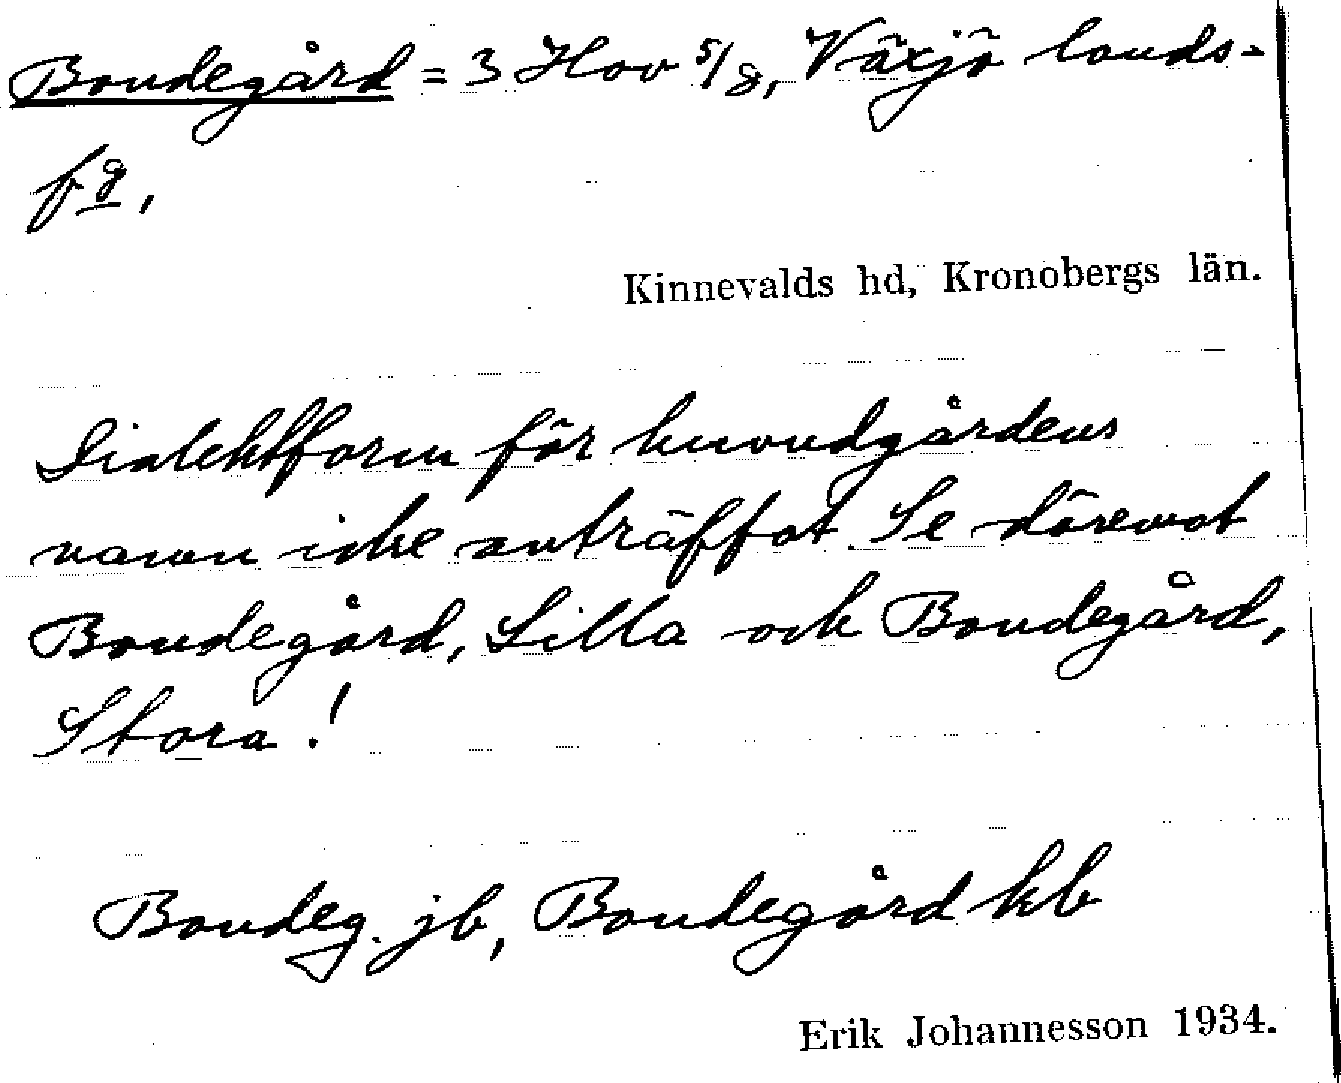 Bondegård = 3 Hov 5/8, Växjö lands-
fg,
Kinnevalds hd, Kronobergs län.
Dialektform för huvudgårdens
namn icke anträffat. Se däremot
Bondegård, Lilla och Bondegård,
Stora!
Bondeg. jb, Bondegård kb
Erik Johannesson 1934.